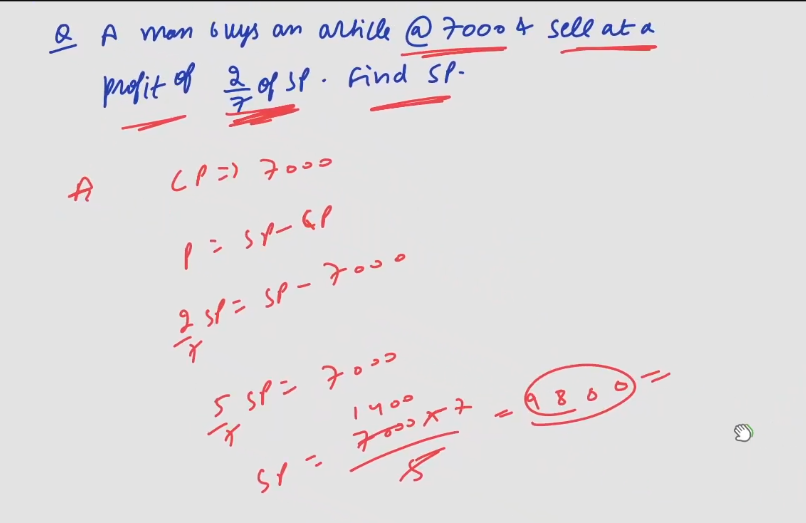 Q A man buys an article @ 7000 & sell at a
profit of 2/7 of SP. Find SP.
A CP => 7000
P = SP - CP
2/7 SP = SP - 7000
5/7 SP = 7000
1400
SP = 7000 x 7 / 5 = 9800 =